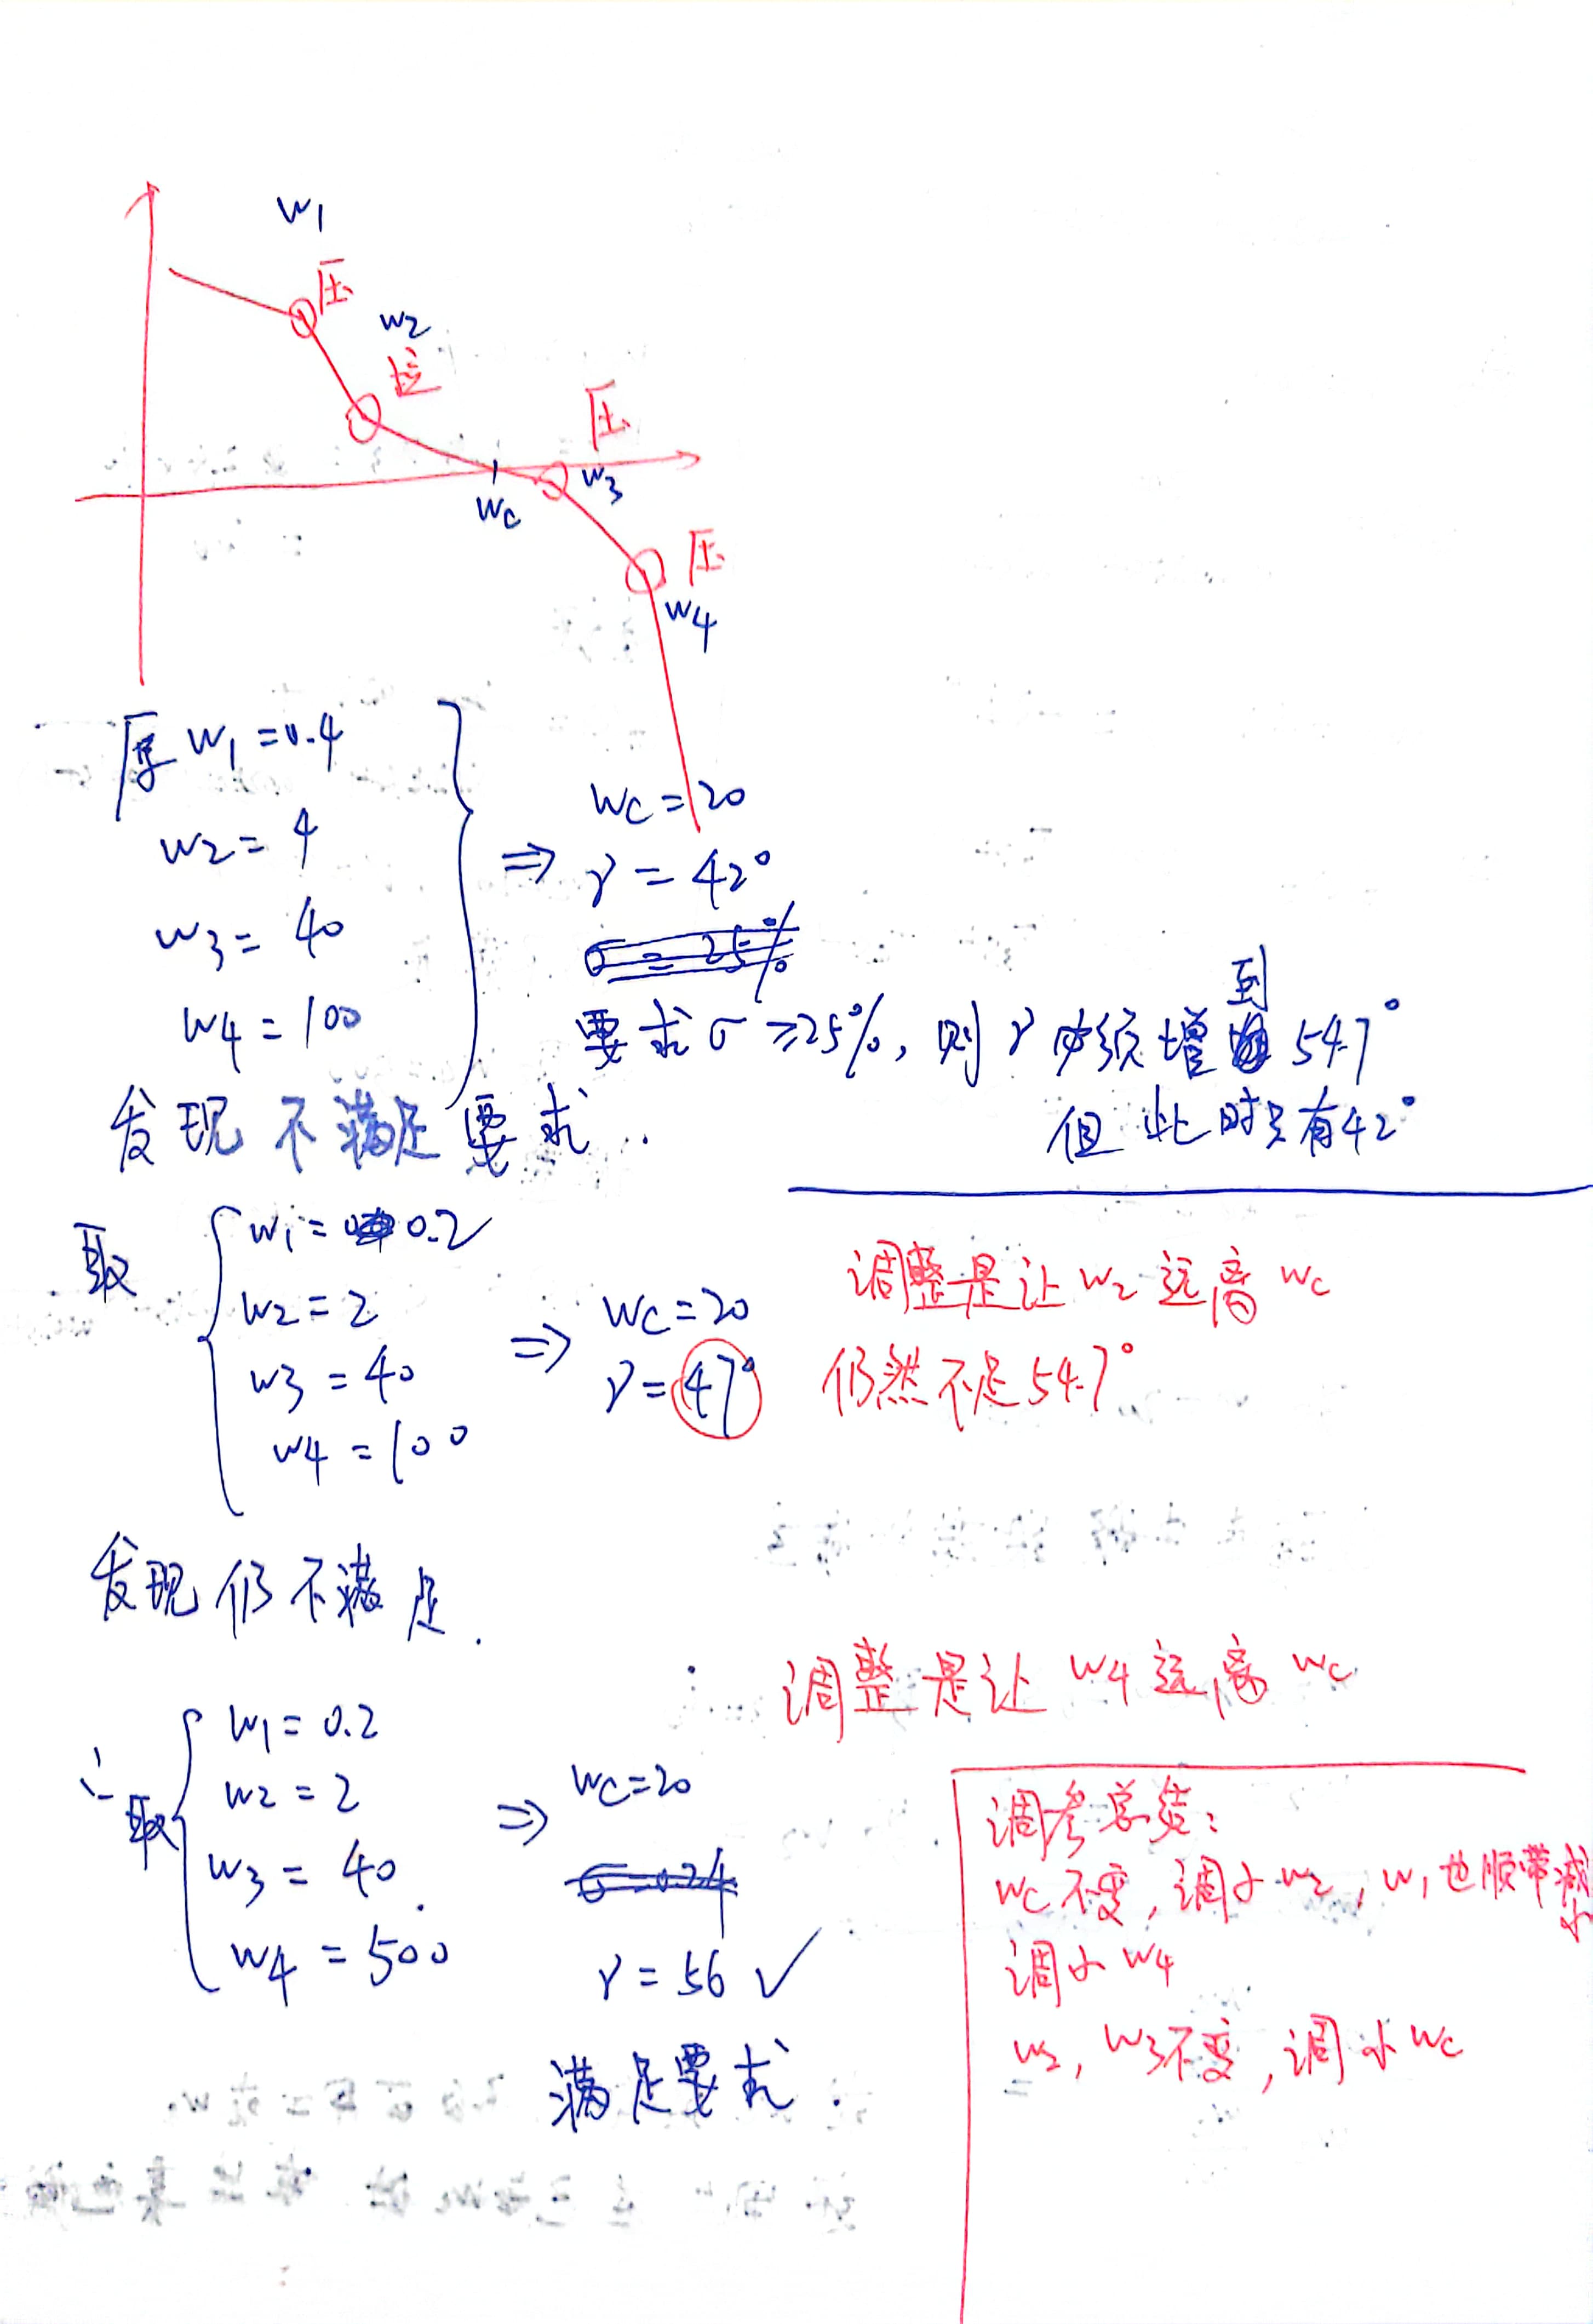 w1
压
w2
拉
压
w3
wc
压
w4
原 w1 = 0.4
w2 = 4
w3 = 40
w4 = 100
⇒ wc = 20
γ = 42°
σ = 25%
要求 σ ≥ 25%, 则 γ 必须增到 54.7°
但此时只有42°
发现不满足要求.
取 w1 = 0.2
w2 = 2
w3 = 40
w4 = 100
⇒ wc = 20
γ = 47°
调整是让 w2 远离 wc
仍然不足 54.7°
发现仍不满足.
调整是让 w4 远离 wc
取 w1 = 0.2
w2 = 2
w3 = 40
w4 = 500
⇒ wc = 20
γ = 56 ✓
满足要求.
调参总结:
wc 不变, 调小 w2, w1 也顺带减小
调小 w4
w2, w3不变, 调小 wc